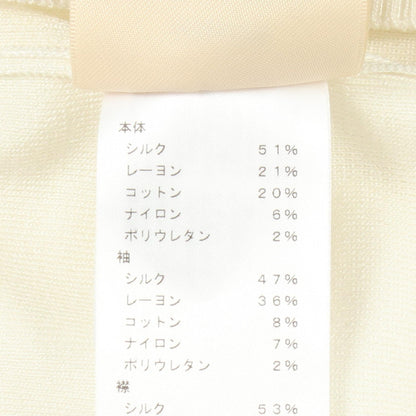 本体
シルク 51%
レーヨン 21%
コットン 20%
ナイロン 6%
ポリウレタン 2%
袖
シルク 47%
レーヨン 36%
コットン 8%
ナイロン 7%
ポリウレタン 2%
襟
シルク 53%